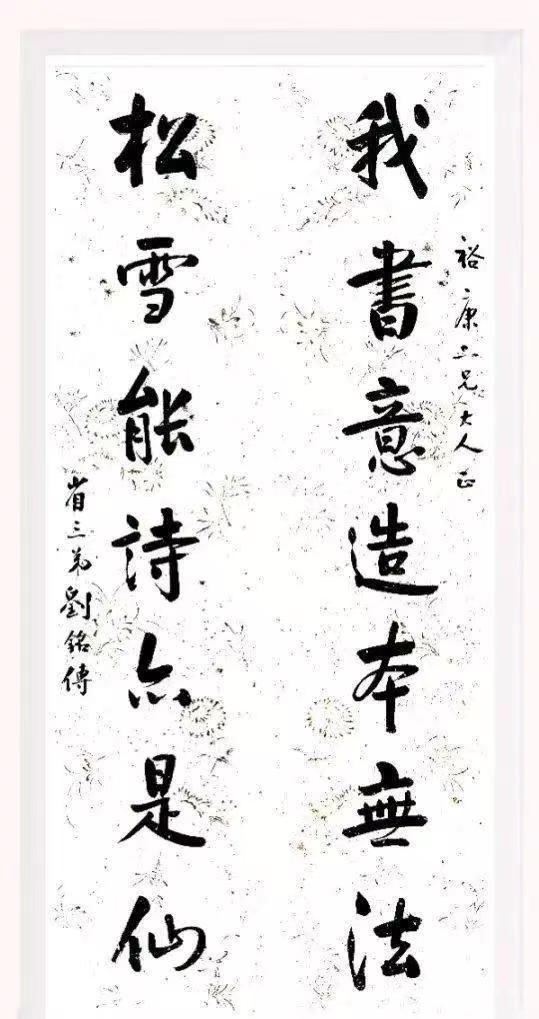 裕康二兄大人正
我書意造本無法
松雪能詩亦是仙
省三弟劉銘傳